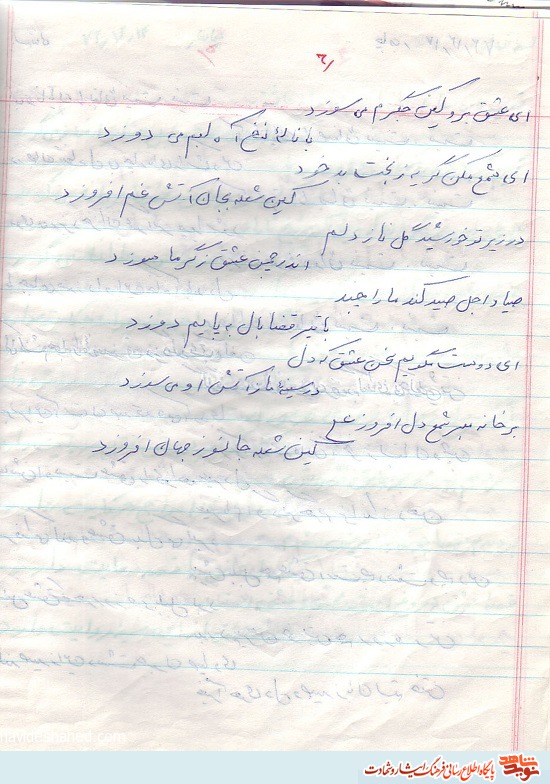 ۶
ای عشق برو کین جگرم می سوزد
با نالهٔ نخ آه لبم می دوزد
ای شمع مکن گریه ز بخت بد خود
کین شعله بجان آتش غم افروزد
در زیر تو خورشید گل ناز دلم
اندر چمن عشق ز گرما سوزد
صیاد اجل صید کند ما را چند
با تیر قضا بال به پایم دوزد
ای دوست مگویم سخن عشق که دل
در سینهٔ ما ز آتش او می سوزد
بر خانه ببر شمع دل افروز علی
کین شعله جانسوز جهان افروزد
navideshahed.com
نوید شاهد پایگاه اطلاع رسانی فرهنگ ایثار و شهادت